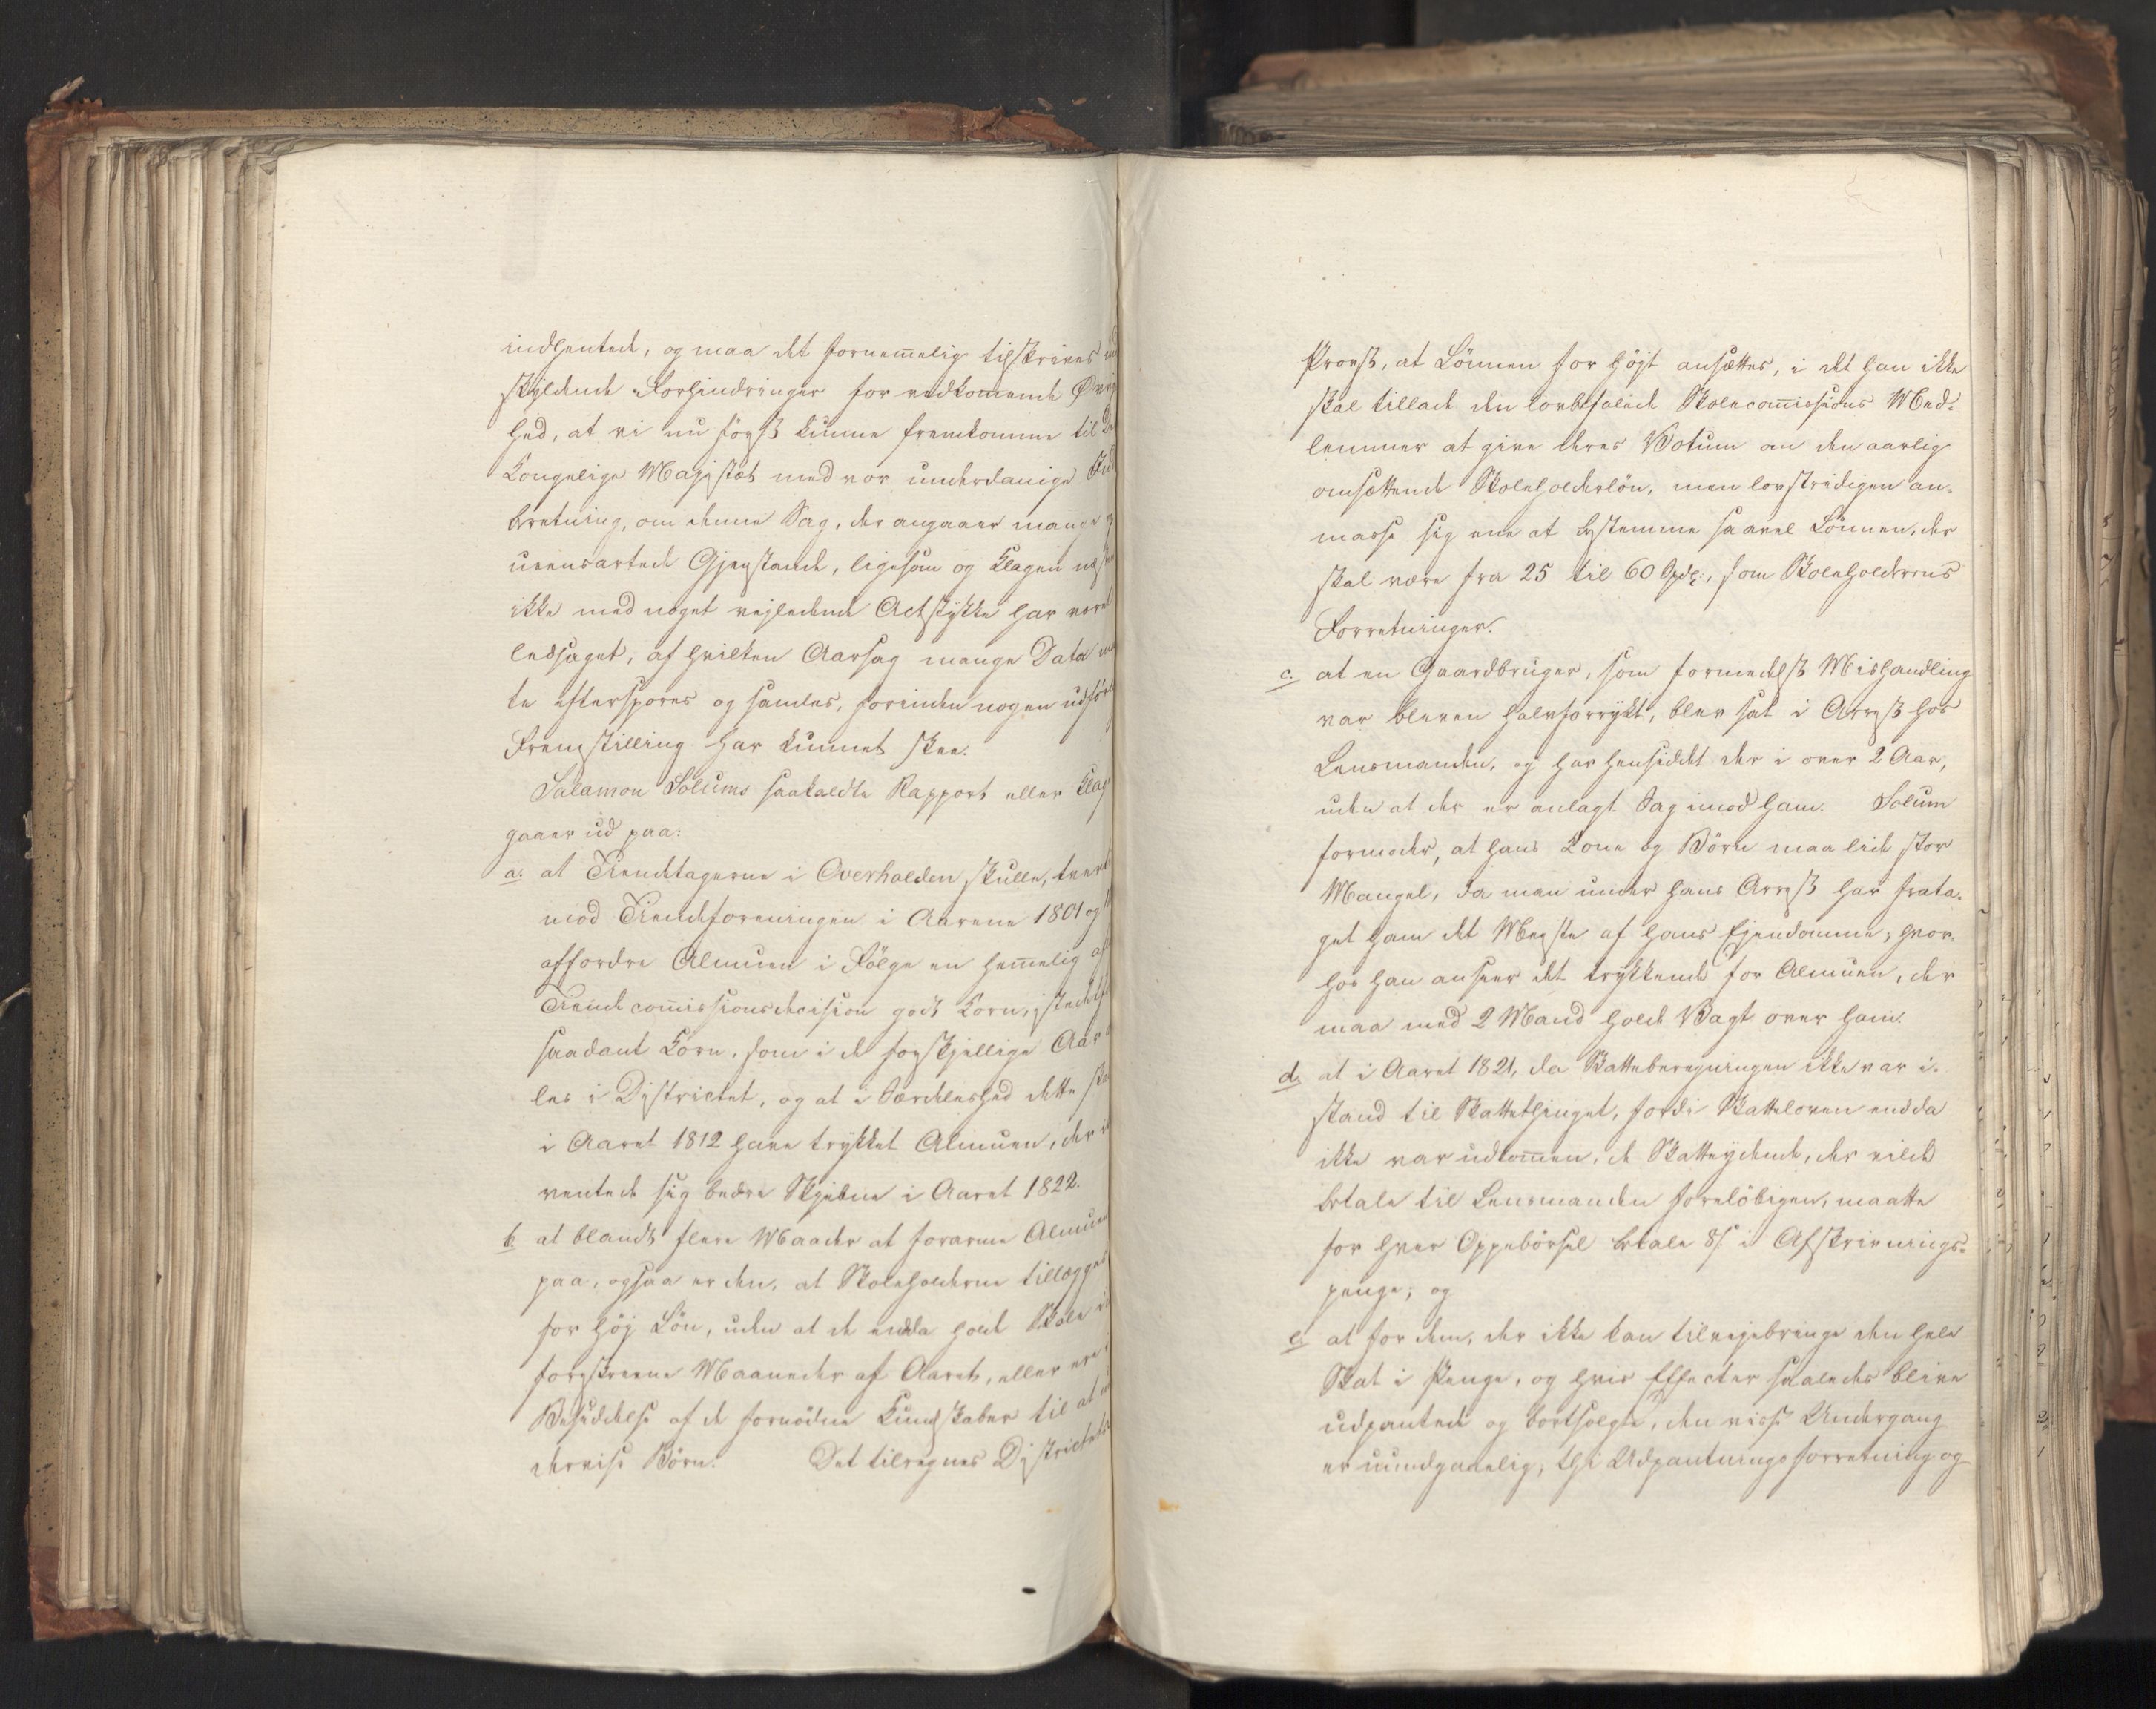 indhentede, og maa det fornemelig tilskrives
skyldende Forhindringer for vedkomende Øvrig
hed, at vi nu först kunne fremkomme til
Kongelige Majestæt med vor underdanige Ind
beretning, om denne Sag, der angaaer mange
ueensartede Gjenstande, ligesom og Klagen
ikke med noget vejledende Actstykke har vær
ledsaget, af hvilken Aarsag mange Data
te efterspores og samles, forinden nogen udför
Fremstilling har kunnet skee.
Salamon Solums saakaldte Rapport eller Klag
gaaer ud paa:
a. at Tiendetagerne i Overhalden skulle, tvert
mod Tiendeforeningen i Aarene 1801 og
affordre Almuen i Fölge en hemelig
Tiendecomissionsdecision godt Korn, istedetf
saadant Korn, som i de forskjellige Aar
les i Districtet, og at i Særdeleshed dette
i Aaret 1812 have trykket Almuen, der
ventede sig bedre Skjebne i Aaret 1822.
b. at blandt flere Maader at forarme Almuen
paa, ogsaa er den, at Skoleholderne tillægges
for höj Lön, uden at de endda holde Skole i
foreskrevne Maaneder af Aaret, eller ere
Besiddelse af de fornödne Kundskaber til at
dervise Börn. Det tilregnes Districtets
Provst, at Lönnen for höjt ansættes, i det han ikke
skal tillade den lovbefalede Skolecomissions Med-
lemmer at give deres Votum om den aarlig
omsættende Skoleholderlön, men lovstridigen an-
masse sig ene at bestemme saavel Lönnen, der
skal være fra 25 til 60 Spdr., som Skoleholderens
Forretninger.
c. at en Gaardbruger, som formedelst Mishandling
var bleven halvforrykt, blev sat i Arrest hos
Lensmanden, og har hensiddet der i over 2 Aar,
uden at der er anlagt Sag imod ham. Solum
formoder, at hans Kone og Börn maa lide stor
Mangel, da man under hans Arrest har frata-
get ham det Meeste af hans Ejendomme; hvor-
hos han anseer det trykkende for Almuen, der
maa med 2 Mand holde Vagt over ham.
d. at i Aaret 1821, da Skatteberegningen ikke var i-
stand til Skattethinget, fordi Skatteloven endda
ikke var udkommen, de Skatteydende, der vilde
betale til Lensmanden forelöbigen, maatte
for hver Oppebörsel betale 8 s. i Afskrivnings-
penge; og
e. at for dem, der ikke kan tilvejebringe den hele
Skat i Penge, og hvis Effecter saaledes blive
udpantede og bortsolgte, den visse Undergang
er uundgaaelig, thi Udpantningsforretning og